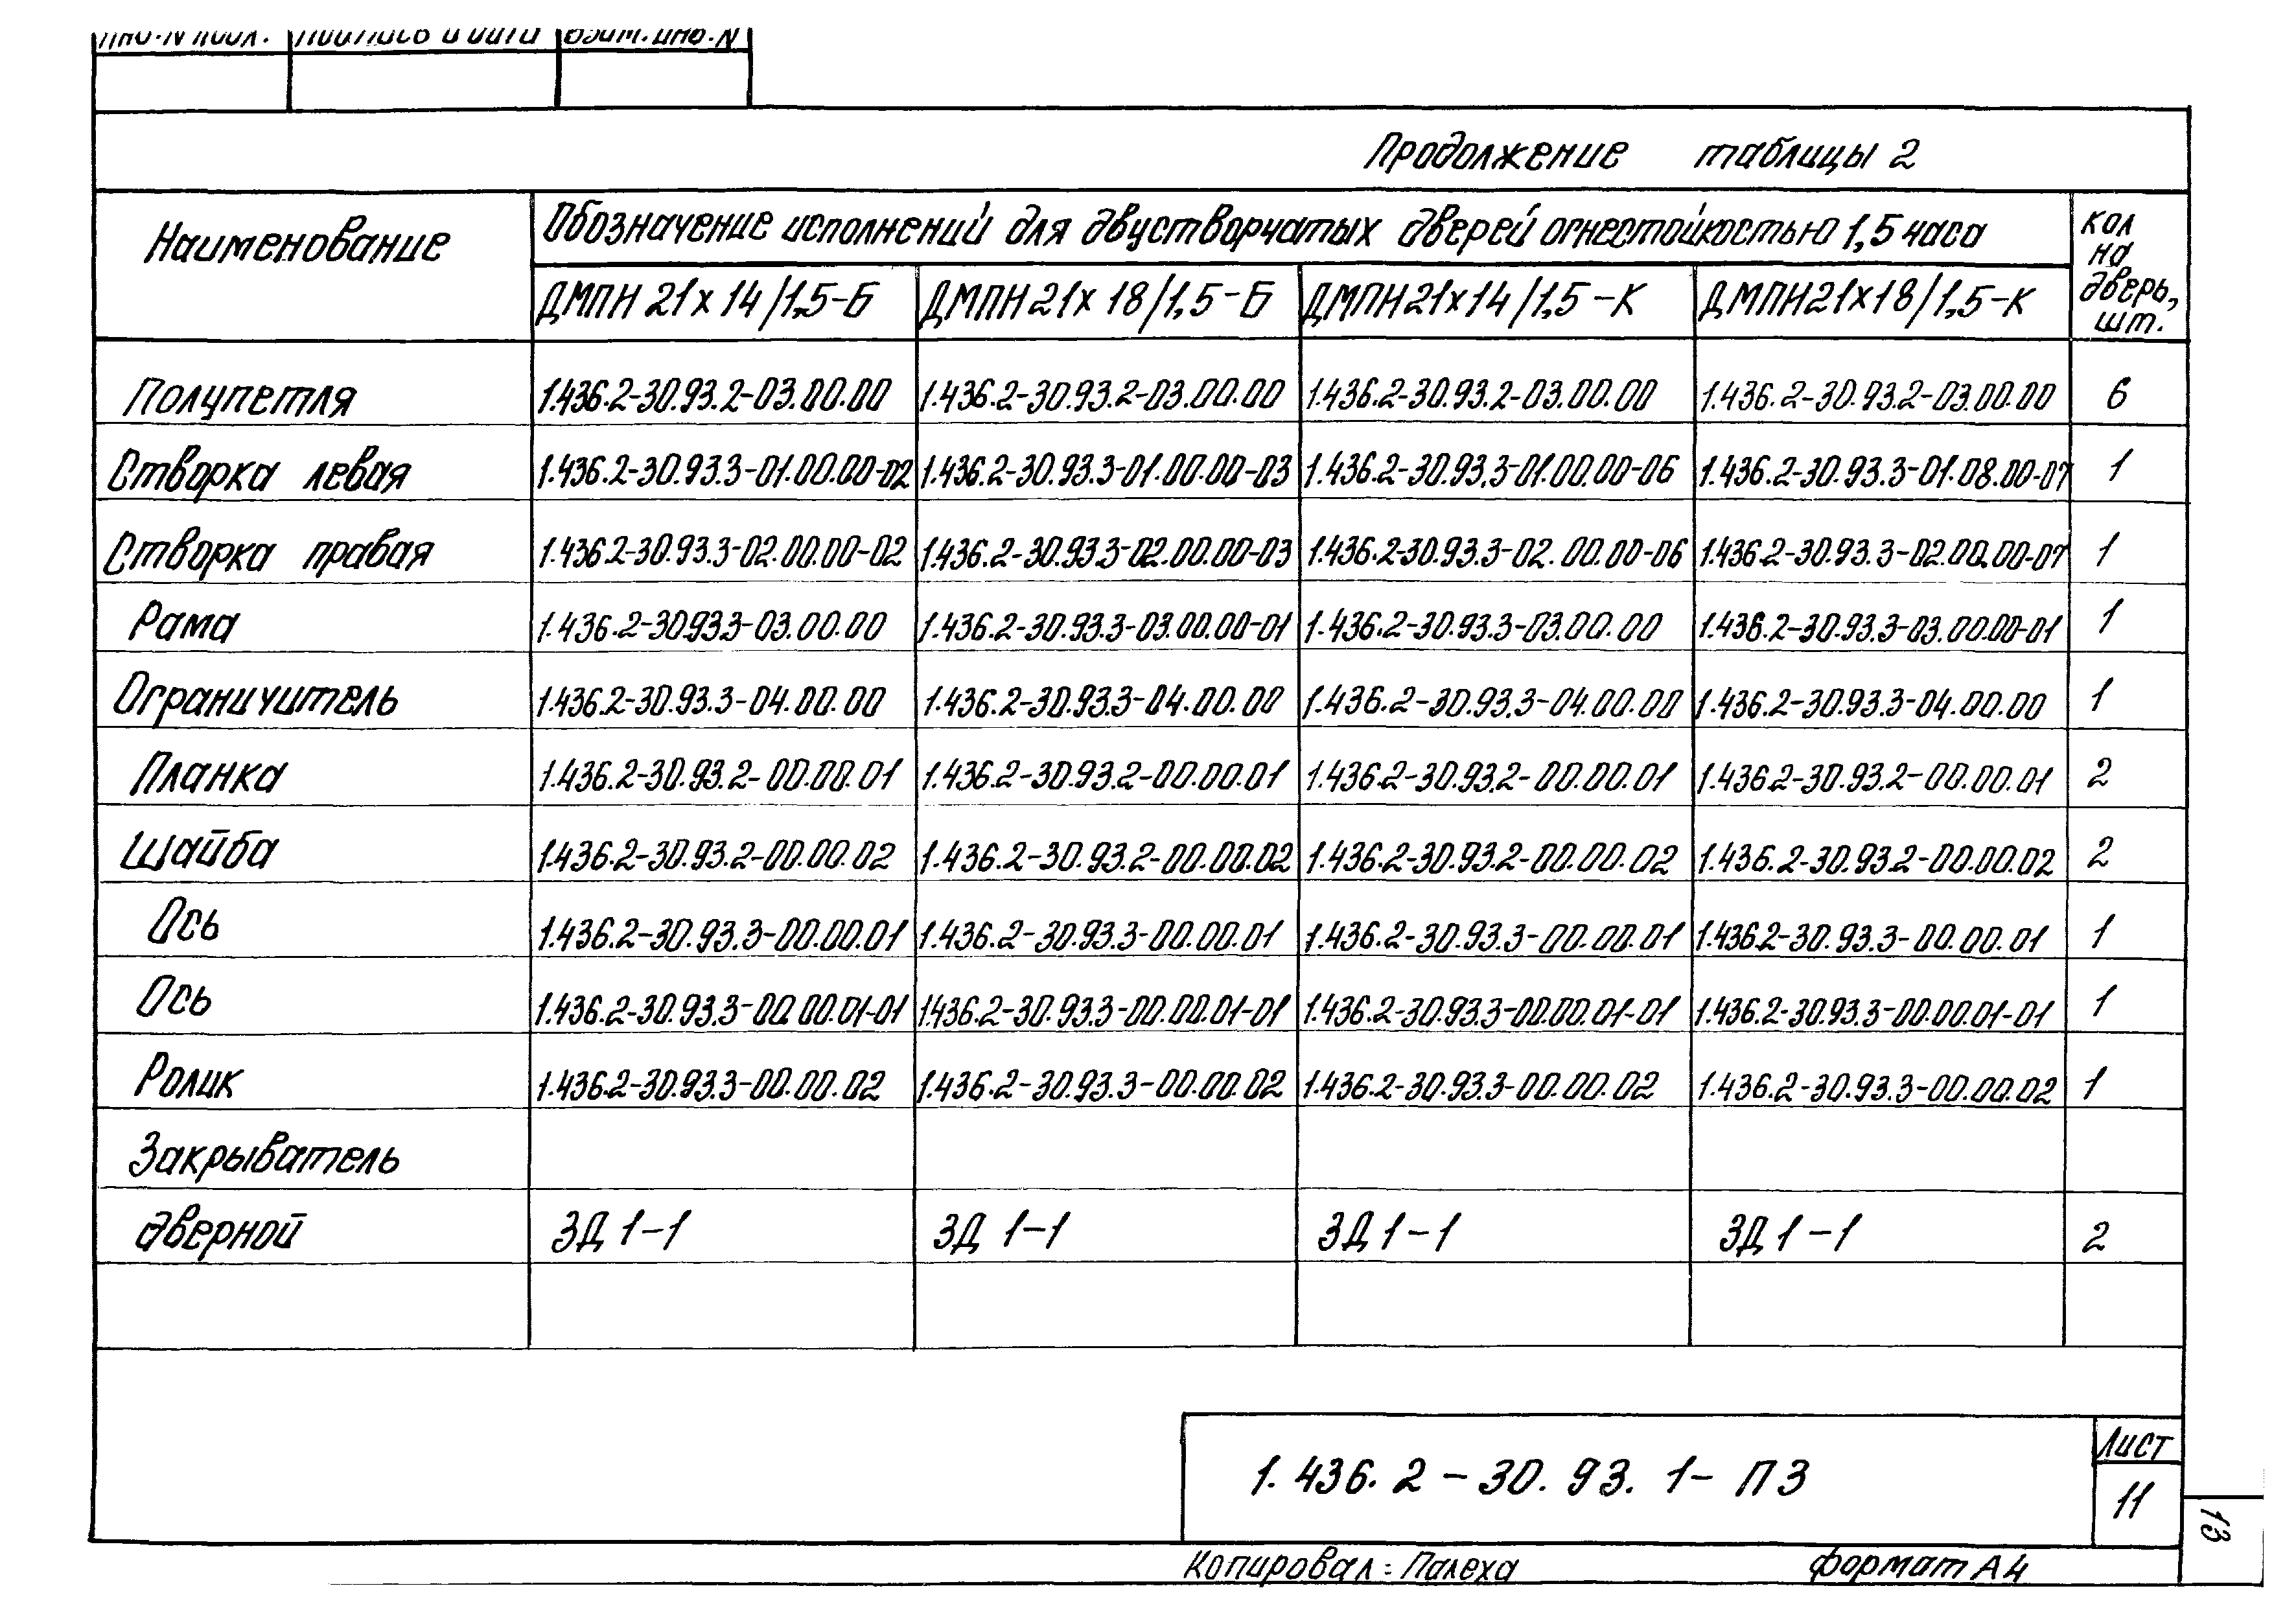 Инв. N подл. Подпись и дата Взам. инв. N
Продолжение таблицы 2
Наименование Обозначение исполнений для двустворчатых дверей огнестойкостью 1,5 часа кол на дверь, шт.
ДМПН 21х14/1,5-Б ДМПН 21х18/1,5-Б ДМПН 21х14/1,5-К ДМПН 21х18/1,5-К
Полупетля 1.436.2-30.93.2-03.00.00 1.436.2-30.93.2-03.00.00 1.436.2-30.93.2-03.00.00 1.436.2-30.93.2-03.00.00 6
Створка левая 1.436.2-30.93.3-01.00.00-02 1.436.2-30.93.3-01.00.00-03 1.436.2-30.93.3-01.00.00-06 1.436.2-30.93.3-01.08.00-07 1
Створка правая 1.436.2-30.93.3-02.00.00-02 1.436.2-30.93.3-02.00.00-03 1.436.2-30.93.3-02.00.00-06 1.436.2-30.93.3-02.00.00-07 1
Рама 1.436.2-30.93.3-03.00.00 1.436.2-30.93.3-03.00.00-01 1.436.2-30.93.3-03.00.00 1.436.2-30.93.3-03.00.00-01 1
Ограничитель 1.436.2-30.93.3-04.00.00 1.436.2-30.93.3-04.00.00 1.436.2-30.93.3-04.00.00 1.436.2-30.93.3-04.00.00 1
Планка 1.436.2-30.93.2-00.00.01 1.436.2-30.93.2-00.00.01 1.436.2-30.93.2-00.00.01 1.436.2-30.93.2-00.00.01 2
Шайба 1.436.2-30.93.2-00.00.02 1.436.2-30.93.2-00.00.02 1.436.2-30.93.2-00.00.02 1.436.2-30.93.2-00.00.02 2
Ось 1.436.2-30.93.3-00.00.01 1.436.2-30.93.3-00.00.01 1.436.2-30.93.3-00.00.01 1.436.2-30.93.3-00.00.01 1
Ось 1.436.2-30.93.3-00.00.01-01 1.436.2-30.93.3-00.00.01-01 1.436.2-30.93.3-00.00.01-01 1.436.2-30.93.3-00.00.01-01 1
Ролик 1.436.2-30.93.3-00.00.02 1.436.2-30.93.3-00.00.02 1.436.2-30.93.3-00.00.02 1.436.2-30.93.3-00.00.02 1
Закрыватель
дверной ЗД 1-1 ЗД 1-1 ЗД 1-1 ЗД 1-1 2
1.436.2-30.93.1-ПЗ
Лист
11
13
Копировал: Палеха формат А4